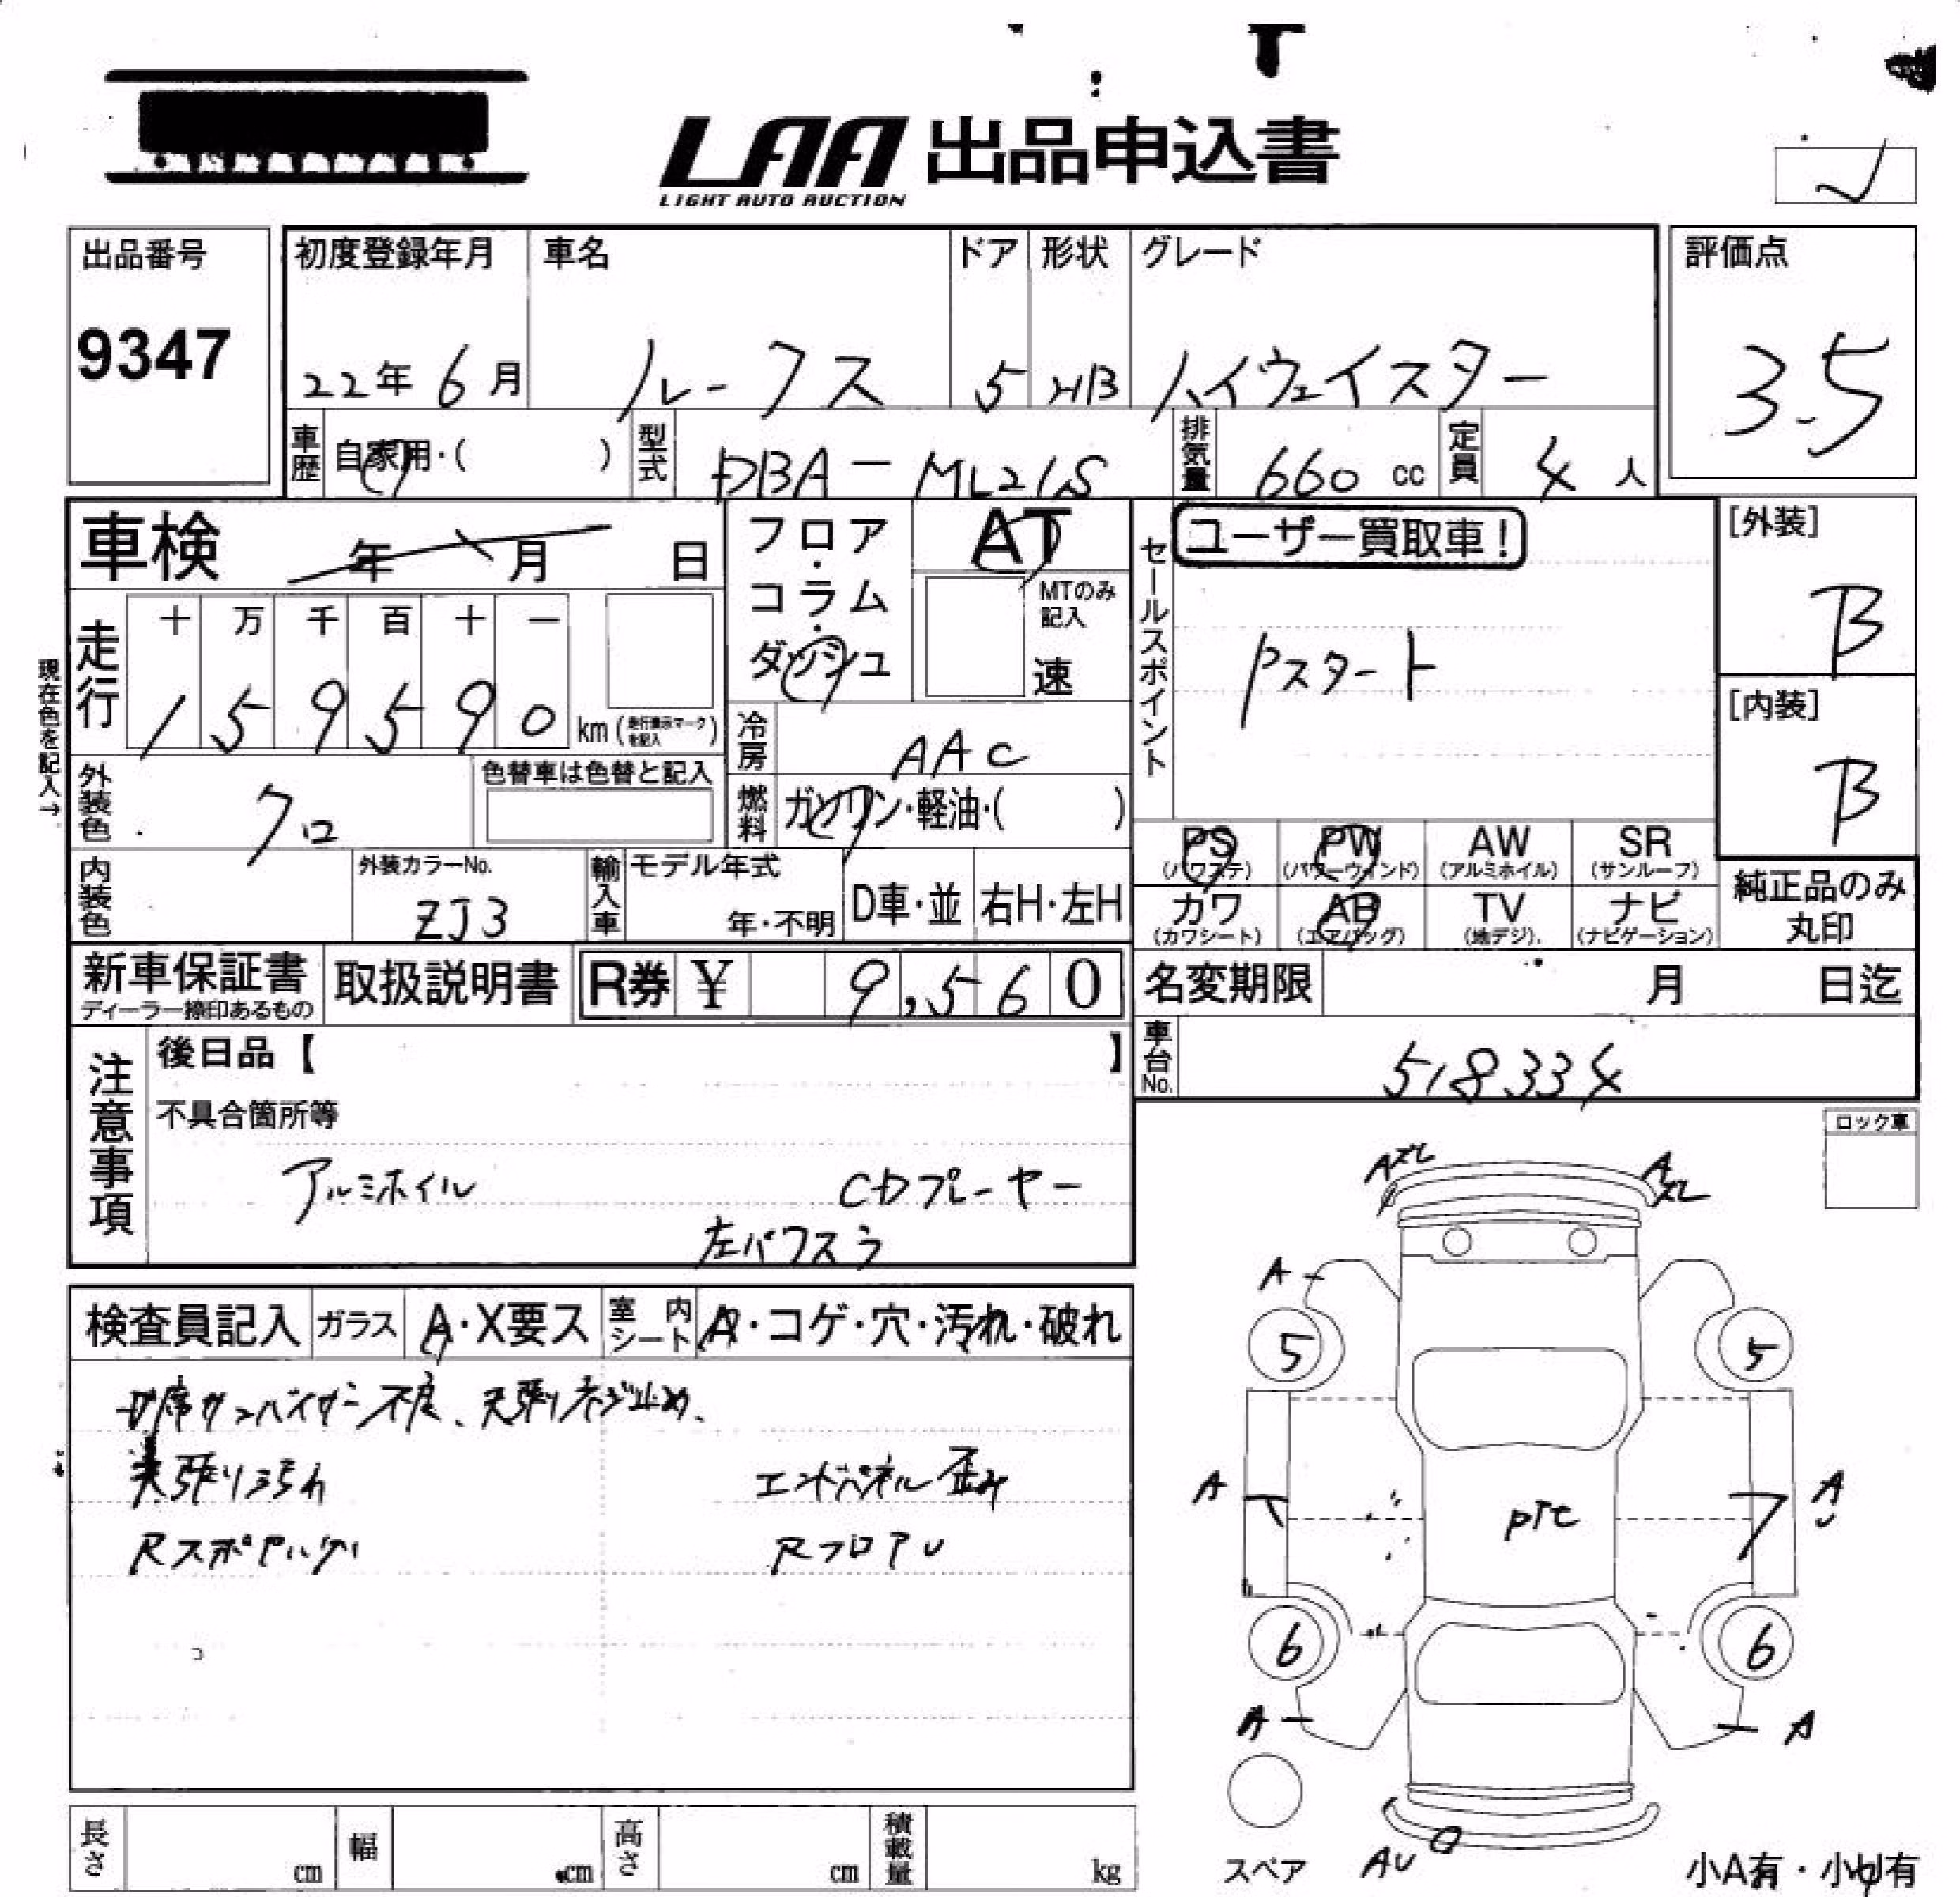 LAA 出品申込書
LIGHT AUTO AUCTION
出品番号
9347
初度登録年月
22年 6月
車名
ルークス
ドア
5
形状
HB
グレード
ハイウェイスター
評価点
3.5
車歴
自家用・( )
型式
DBA-ML21S
排気量
660 cc
定員
4 人
車検 年 月 日
フロア・コラム・ダッシュ
AT
MTのみ記入
速
セールスポイント
ユーザー買取車!
Pスタート
[外装]
B
[内装]
B
現在色を記入→
走行
十 万 千 百 十 一
1 5 9 5 9 0 km (走行表示マークを記入)
冷房
AAC
外装色
クロ
色替車は色替と記入
燃料
ガソリン・軽油・( )
内装色
外装カラーNo.
ZJ3
輸入車
モデル年式
年・不明
D車・並
右H・左H
PS (パワステ)
PW (パワーウインド)
AW (アルミホイル)
SR (サンルーフ)
カワ (カワシート)
AB (エアバッグ)
TV (地デジ)
ナビ (ナビゲーション)
純正品のみ丸印
新車保証書
ディーラー捺印あるもの
取扱説明書
R券 ¥ 9,560
名変期限 月 日迄
車台No.
518334
注意事項
後日品【 】
不具合箇所等
アルミホイル CDプレーヤー
左パワスラ
ロック車
検査員記入
ガラス
A・X要ス
室内シート
A・コゲ・穴・汚れ・破れ
天張りネジ止め
天張り
エンドパネル歪み
Rスポ
RフロアU
Aズレ
Aズレ
A
5
5
A
PTC
A
U
6
6
A
A
スペア
AU
小A有・小U有
長さ cm
幅 cm
高さ cm
積載量 kg